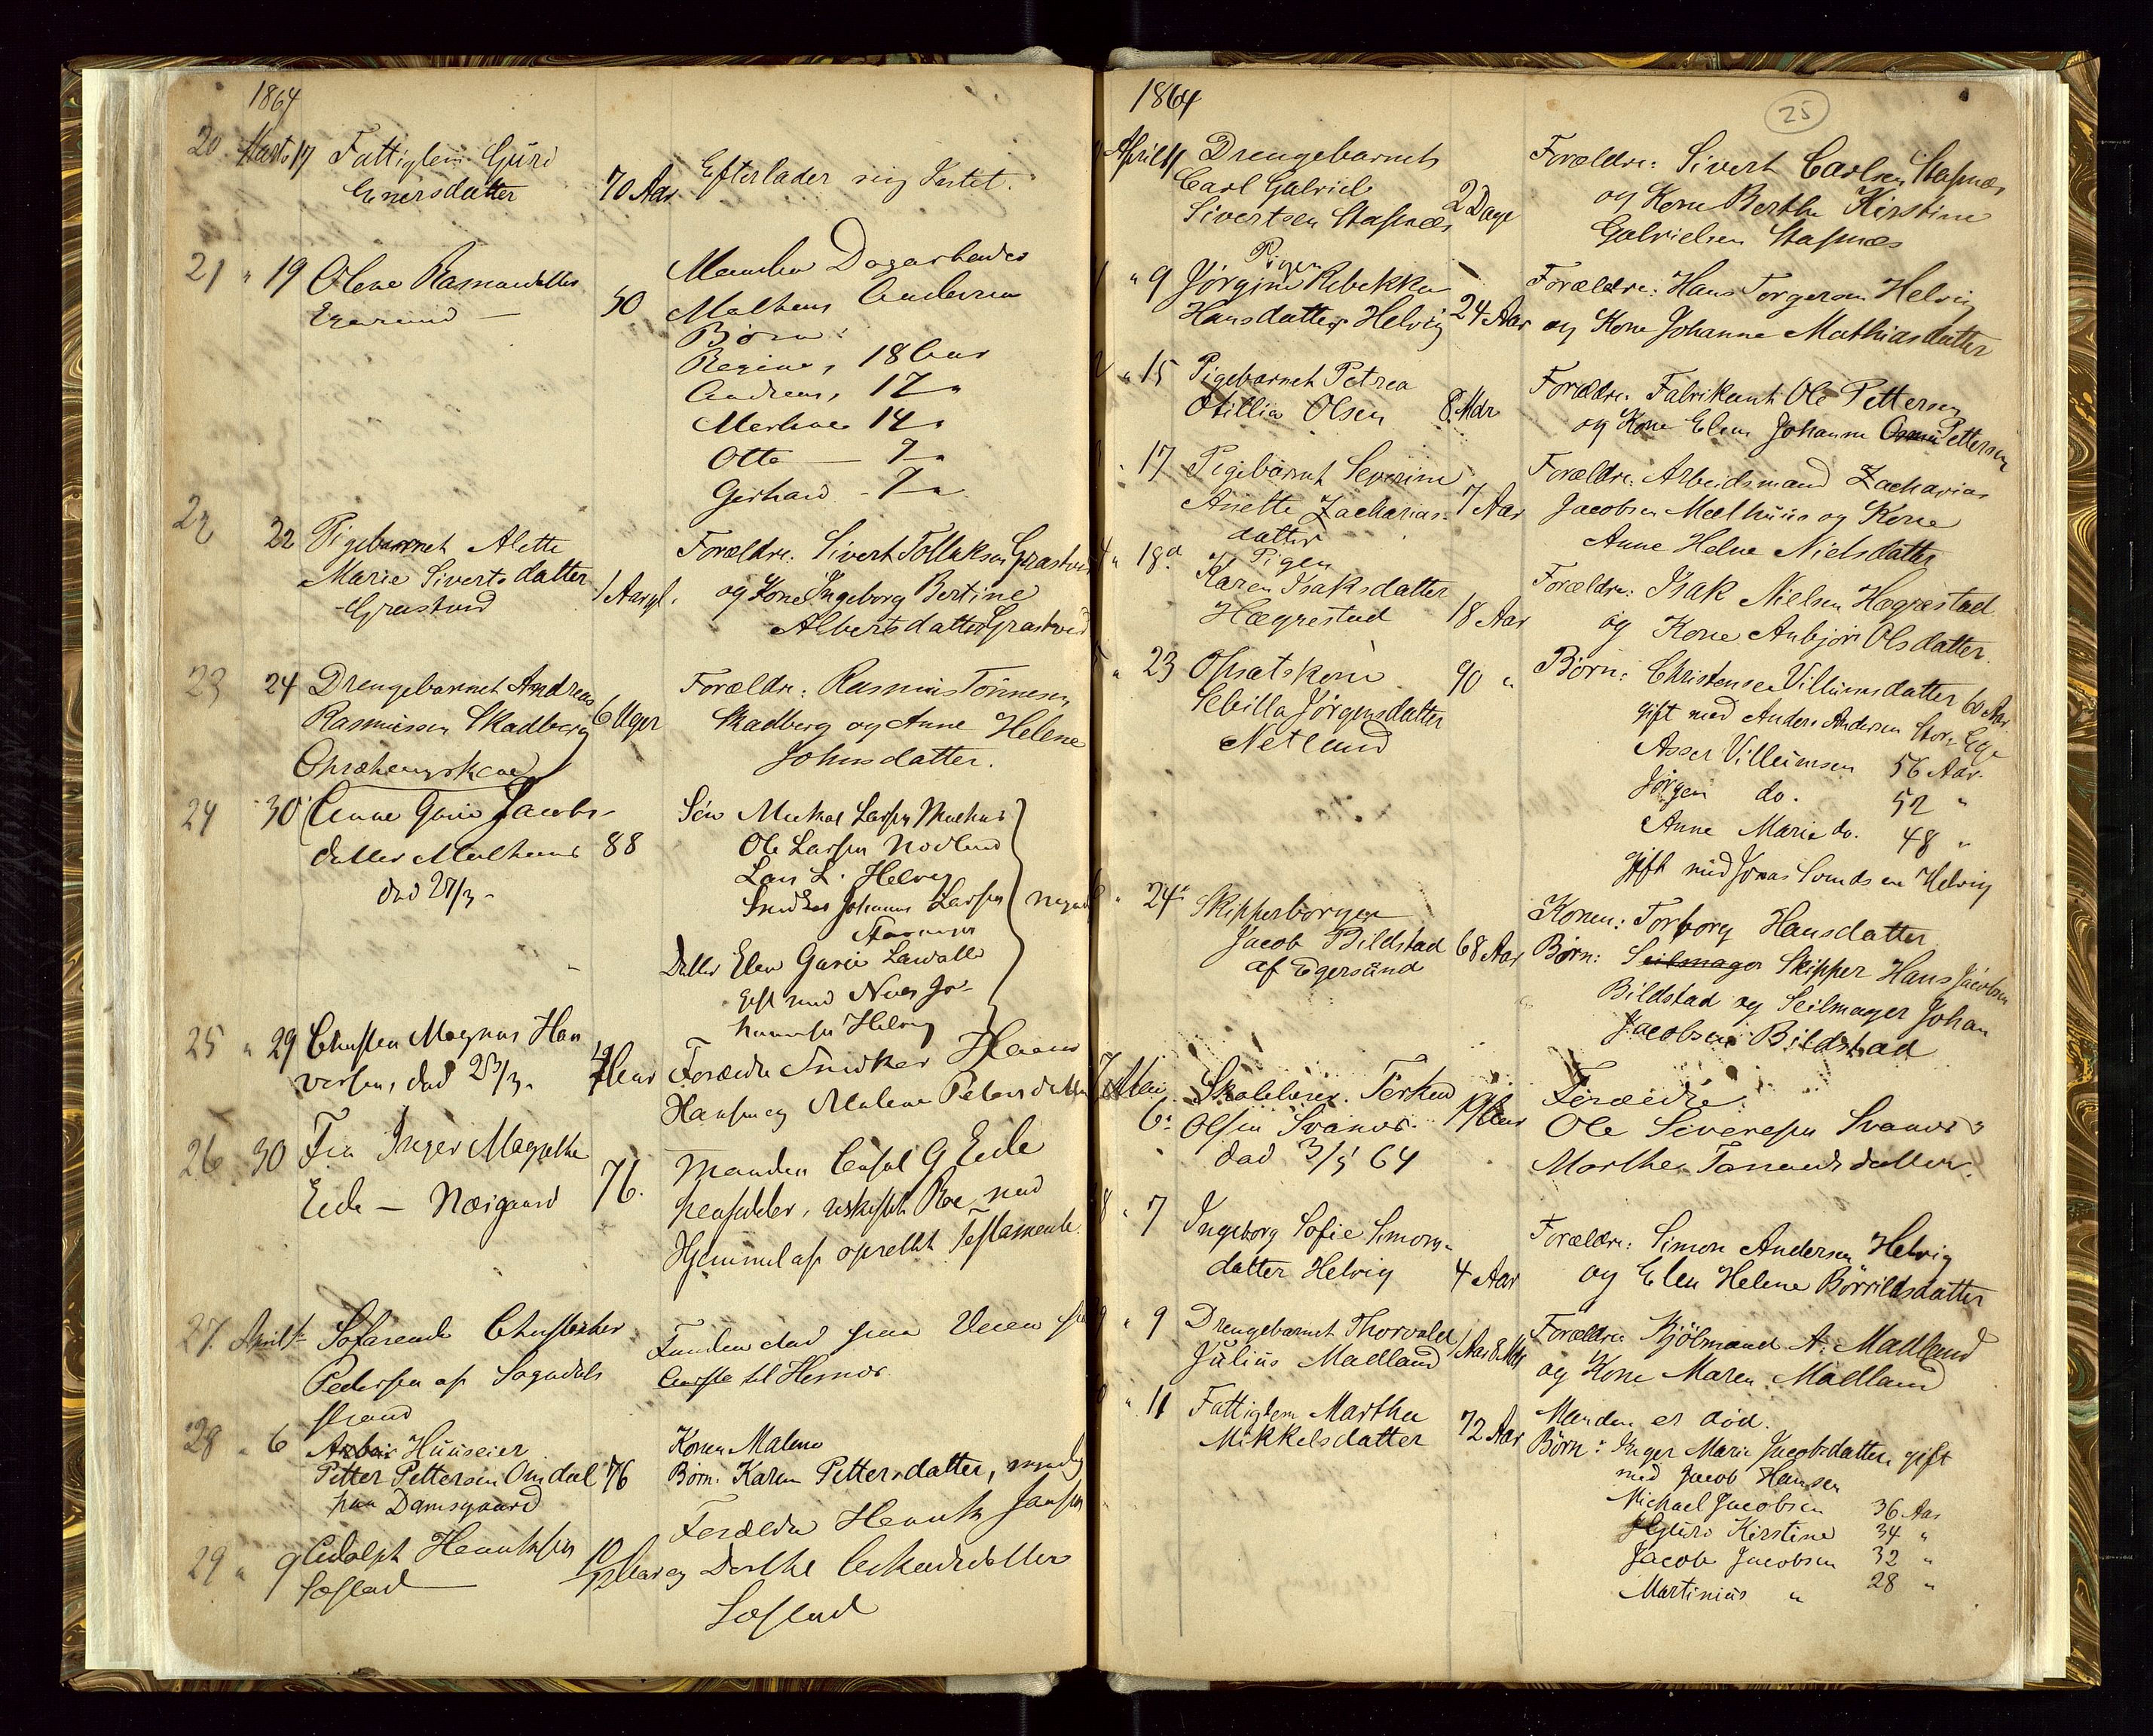 1864
20 Marts 17 Fattiglem Guri
Enersdatter 70 Aar Efterlader sig Intet.
21 " 19 Olene Rasmusdatter
Egersund — 50
Manden Dagarbeider
Matheus Andersen
Børn:
Regine, 18 Aar
Andreas, 17 "
Marthe 14 "
Otto — 7 "
Gerhard - 7 "
22 22 Pigebarnet Alette
Marie Siverts datter 1 Aar gl.
Grastveid
Forældre. Sivert Tollaksen Grastveid
og Kone Ingeborg Bertine
Alberts datter Grastveid
23 24 Drengebarnet Andreas
Rasmussen Skadberg 6 Uger
Forældre: Rasmus Tønnesen
Skadberg og Anne Helene
Johnsdatter.
24 30 Anne Gurie Jacobs-
datter Mælhuus 88
død 27/3 -
Søn Mikal Larsen Mælhuus
Ole Larsen Nodland
Lars L. Helvig
Snedker Johannes Larsen
Stavanger
Datter Elen Gurie Larsdatter
gift med Niels Jo-
hannesen Helvig
25 " 29 Christen Magnus Han
versen, død 23/3. Aar
Forældre Snedker Hans
Hansen og Malene Petersdatter
26 30 Fru Inger Magrethe
Eide — Næsgaard 76.
Manden Consul G Eide
hensidder i uskiftet Boe med
Hjemmel af oprettet Testamente.
27. April 1 Søfarende Christopher
Pedersen af Sogndals
strand
Funden død paa Veien fra
til Hesnes
28 " 6 Arbei Huuseier
Petter Pettersen Omdal 76
paa Damsgaard
Konen Malene
Børn: Karen Pettersdatter, myndig
29 " 9 Adolph Henriksen 10/12 Aar
Løsland
Forældre Henrik Jansen
og Dorthe Askildsdatter
Løsland
1864
25
April 4 Drengebarnet
Carl Gabriel 2 Dage
Sivertsen Stapnæs
Forældre: Sivert Carlsen Stapnæs
og Kone Berthe Kirstine
Gabrielsen Stapnæs
" 9 Pigen
Jørgine Rebekka
Hansdatter Helvig 24 Aar
Forældre: Hans Torgersen Helvig
og Kone Johanne Mathiasdatter
" 15 Pigebarnet Petrea
Otillia Olsen 8 Mdr
Forældre. Fabrikant Ole Pettersen
og Kone Elen Johanne Pettersen
" 17 Pigebarnet Severine
Anette Zacharias- 7 Aar
datter
Forældre: Arbeidsmand Zacharias
Jacobsen Mælhuus og Kone
Anne Helene Nielsdatter
" 18. Pigen
Karen Isaksdatter
Hægrestad 18 Aar
Forældre: Isak Nielsen Hægrestad
og Kone Anbjør Olsdatter.
" 23 Opsatskone 90 "
Sebilla Jørgensdatter
Netland
Børn: Christense Villumsdatter 60 Aar
gift med Anders Andersen Store Ege
Asser Villumsen 56 Aar.
Jørgen do. 52 "
Anne Marie do. 48 "
gift med Jonas Svendsen Helvig
" 24 Skipperborger
Jacob Bildstad 68 Aar
af Egersund
Konen: Torborg Hansdatter
Børn: Seilmager Skipper Hans Jacobsen
Bildstad og Seilmager Johan
Jacobsen Bildstad
7 Mai
6. Skolelærer. Torkild Aar
Olsen Svanes.
død 3/5 64
Forældre.
Ole Siversen Svanes &
Marthe Tønnesdatter.
8 " 7 Ingeborg Sofie Simons-
datter Helvig 4 Aar
Forældre: Simon Andersen Helvig
og Elen Helene Börrildsdatter
9 " 9 Drengebarnet Thorvald
Julius Madland 1 Aar 8 Mdr
Forældre Kjölmand A. Madland
og Kone Maren Madland
" 11 Fattiglem Martha
Mikkelsdatter 72 Aar
Manden er död.
Børn: Inger Marie Jacobsdatter, gift
med Jacob Hansen
Michael Jacobsen 36 Aar
Guro Kirstine 34 "
Jacob Jacobsen 32 "
Martinius " 28 "